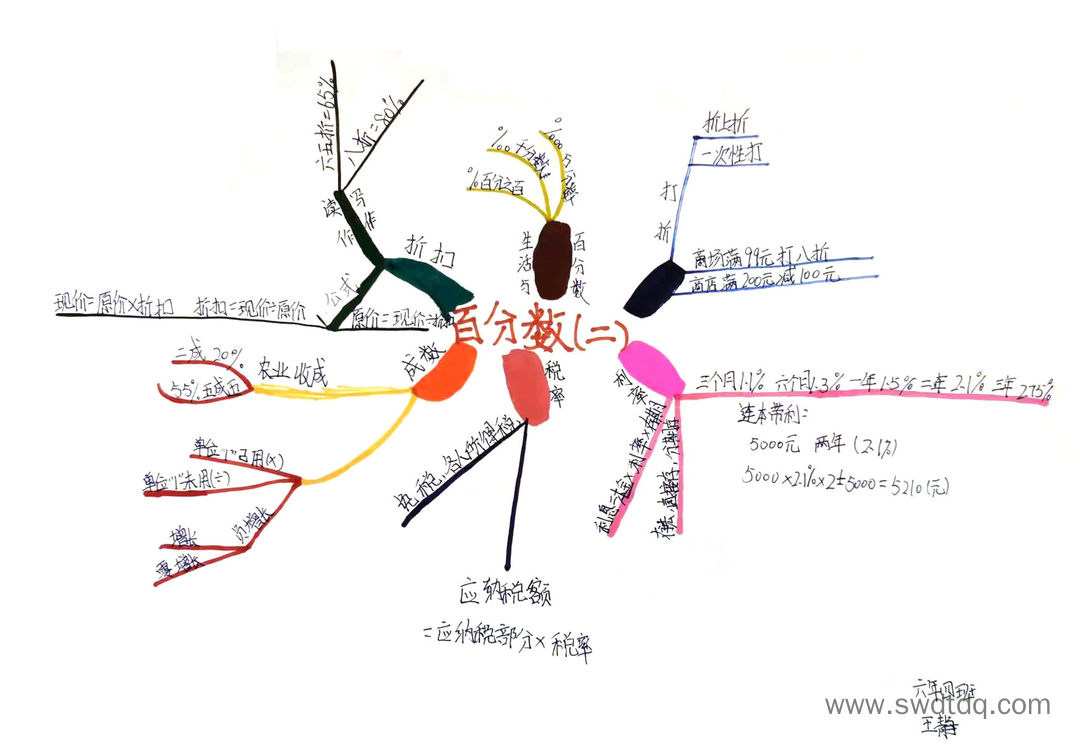 百分数(二)
折扣
读作
写作
六五折=65%
八折=80%
公式
现价=原价×折扣
折扣=现价÷原价
原价=现价÷折扣
生活与
百分数
%百分之百
‰千分数
‱万分率
打折
折上折
一次性打
商场满99元打八折
商店满200元减100元
成数
农业收成
二成 20%
55%五成五
单位"1"已用(×)
单位"1"未用(÷)
负增长
增长
零增长
税率
应纳税额
=应纳税部分×税率
利率
三个月1.1% 六个月1.3% 一年1.5% 二年2.1% 三年2.75%
连本带利=
5000元 两年 (2.1%)
5000×2.1%×2+5000=5210(元)
六年四班
王静
www.swdtdq.com